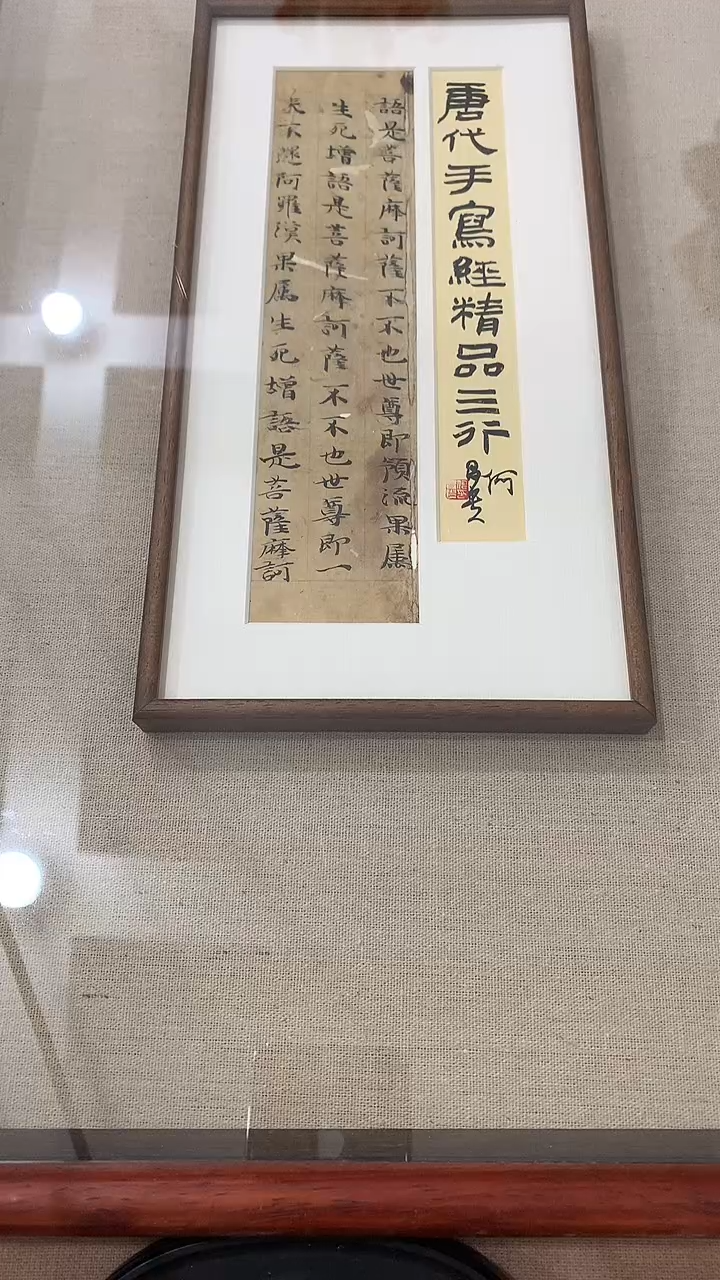 唐代手寫經精品三行
何
語是菩薩摩訶薩不不也世尊即預流果属
生死增語是菩薩摩訶薩不不也世尊即一
来不還阿羅漢果属生死增語是菩薩摩訶